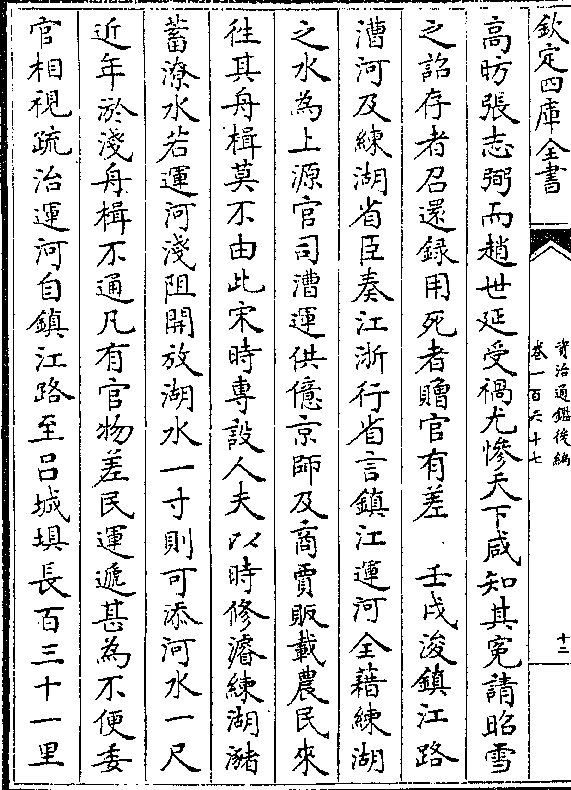 欽定四庫全書
資治通鑑後編
卷一百六十七
十二
高昉張志弼而趙世延受禍尤慘天下咸知其寃請昭雪
之詔存者召還録用死者贈官有差 壬戌浚鎮江路
漕河及練湖省臣奏江浙行省言鎮江運河全藉練湖
之水為上源官司漕運供億京師及商賈販載農民來
徃其舟楫莫不由此宋時專設人夫以時修濬練湖瀦
蓄潦水若運河淺阻開放湖水一寸則可添河水一尺
近年淤淺舟楫不通凡有官物差民運遞甚為不便委
官相視疏治運河自鎮江路至吕城埧長百三十一里